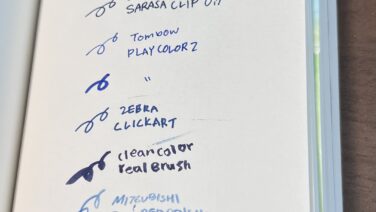 SARASA CLIP
Tombow
PLAYCOLOR 2
"
ZEBRA
CLICKART
clean color
real brush
MITSUBISHI